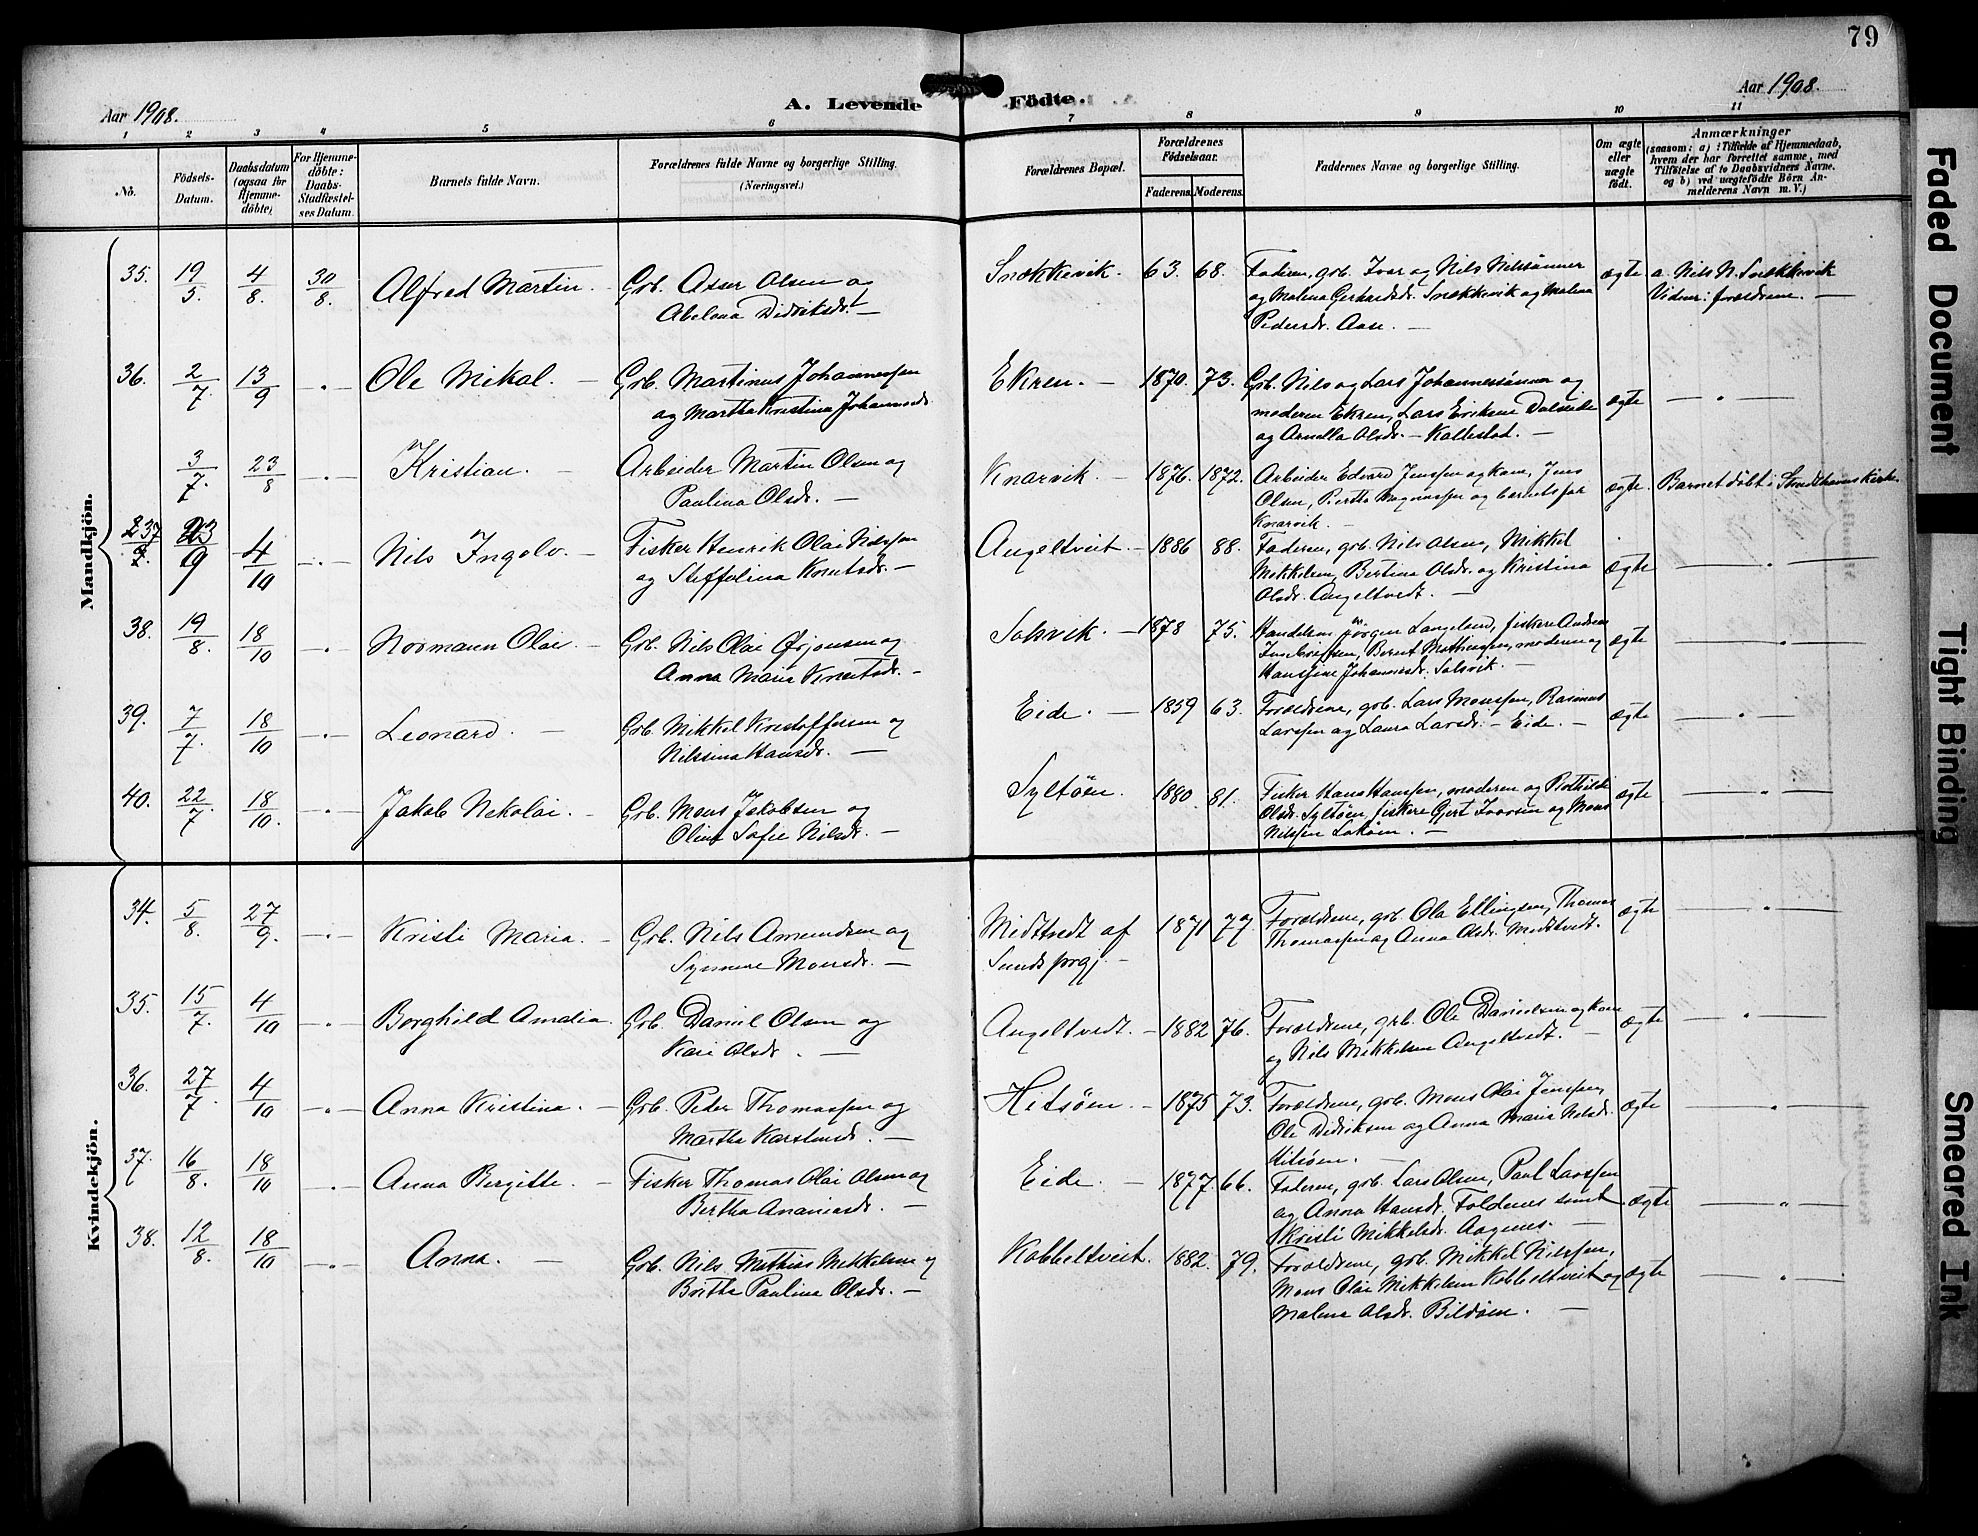 79
Aar 1908.
A. Levende Födte.
Aar 1908.
1 2 3 4 5 6 7 8 9 10 11
No.
Födsels-
Datum.
Daabsdatum
(ogsaa for
Hjemme-
döbte)
For Hjemme-
döbte:
Daabs-
Stadfæstel-
ses Datum.
Barnets fulde Navn.
Forældrenes fulde Navne og borgerlige Stilling.
(Næringsvei.)
Forældrenes Bopæl.
Forældrenes
Födselsaar.
Faderens. Moderens.
Faddernes Navne og borgerlige Stilling.
Om ægte
eller
uægte
födt.
Anmærkninger
(saasom: a) i Tilfælde af Hjemmedaab,
hvem der har forrettet samme, med
Tilföielse af to Daabsvidners Navne,
og b) ved uægtefödte Börn An-
melderens Navn m. V.)
Mandkjön.
35. 19/5. 4/8 30/8 Alfred Martin. Grb. Asser Olsen og
Abelona Didriksdr. —
Snekkevik. 63. 68. Faderen, grb. Ivar og Nils Nilssønner
og Malena Gerhardsdr. Snekkevik og Malena
Pedersdr. Aase. —
ægte a. Nils N. Snekkevik
Vidner: forældrene. —
36. 2/7 13/9 — " — Ole Mikal. — Grb. Martinus Johannessen
og Martha Kristina Johannesdr.
Ekren. — 1870. 73. Grb. Nils og Lars Johannessønner og
moderen Ekren, Lars Eriksen Dalseide
og Arnolla Olsdr. — Kallestad. —
ægte — " —
3/7. 23/8 — " — Kristian. — Arbeider Martin Olsen og
Paulina Olsdr. —
Knarvik. — 1876. 1872. Arbeider Edvard Jenssen og kone, Jens
Olsen, Berthe Magnussen og barnets far
Knarvik. —
ægte. Barnet döbt i Kirke.
37 23/9 4/10 — " — Nils Ingolv. — Fisker Henrik Olai Nilssen
og Steffelina Knutsdr. —
Angeltveit. — 1886 88. Faderen, grb. Nils Olsen, Mikkel
Mikkelsen, Bertina Olsdr. og Kristina
Olsdr. Angeltvedt. —
ægte — " —
38. 19/8. 18/10 — " — Normann Olai. — Grb. Nils Olai Ørjansen og
Anna Maria Knutsdr. —
Solsvik. — 1878 75. Handelsm. Jørgen Langeland, fiskere Andreas
Berent Mathiassen, moderen og
Hansine Johannesdr. Solsvik. —
ægte — " —
39. 7/7. 18/10 — " — Leonard. — Grb. Mikkel Kristoffersen og
Nilssina Hansdr. —
Eide. — 1859 63. Forældrene, grb. Lars Monssen, Rasmus
Larssen og Laura Larsdr. — Eide. —
ægte — " —
40. 22/7 18/10. — " — Jakob Nekolai. — Grb. Mons Jakobsen og
Olina Sofie Nilsdr. —
Syltøen. 1880. 81. Fisker Hans Hanssen, moderen og Bothilde
Olsdr. Syltøen, fiskere Gjert Ivarsen og Mons
Nilssen Lokøen. —
ægte — " —
Kvindekjön.
34. 5/8. 27/9. — " — Kristi Maria. — Grb. Nils Amundsen og
Synneve Monsdr. —
Midttvedt af
Sunds prgj. —
1871 77. Forældrene, grb. Ola Ellingsen, Thomas
Thomassen og Anna Olsdr. Midttvedt.
ægte — " —
35. 15/7. 4/10 — " — Borghild Amalia. Grb. Daniel Olsen og
Kari Olsdr. —
Angeltvedt. — 1882 76. Forældrene, grb. Ole Danielsen og kone
og Nils Mikkelsen Angeltvedt. —
ægte — " —
36. 27/7. 4/10 — " — Anna Kristina. — Grb. Peder Thomassen og
Martha Karstensdr. —
Hitsøen. — 1875 73. Forældrene, grb. Mons Olai Jenssen,
Ole Didriksen og Anna Maria Nilsdr.
Hitsøen. —
ægte — " —
37. 16/8. 18/10 — " — Anna Bergitte. — Fisker Thomas Olai Olsen og
Bertha Ananiasdr. —
Eide. — 1877. 66. Faderen, grb. Lars Olsen, Paul Larssen
og Anna Hansdr. Foldnes samt
Kristi Mikkelsdr. Aagnes. —
ægte — " —
38. 12/8. 18/10 — " — Anna. — Grb. Nils Mathias Mikkelsen og
Britha Paulina Olsdr. —
Kobbeltveit. 1882. 79. Forældrene, grb. Mikkel Nilssen,
Mons Olai Mikkelsen Kobbeltveit og
Malene Olsdr. Bildøen. —
ægte — " —
Faded Document
Tight Binding
Smeared Ink